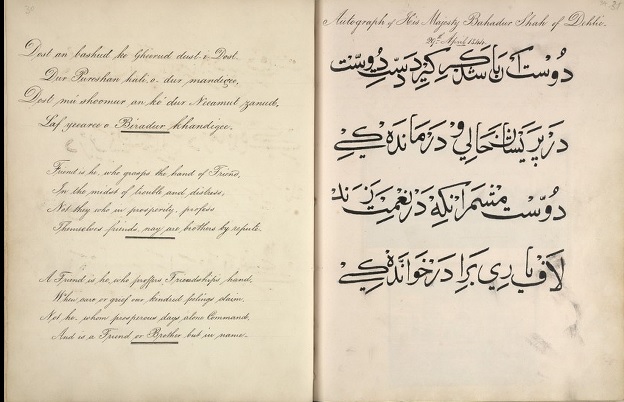 Dost án bashud ke Gheerud dust i Dost.
Dur Pureshan hali, o, dur mandigee,
Dost mu shoomur an ko dur Neeamut zanud,
Laf yeearee o Biradur Khandigee.
Friend is he, who grasps the hand of Friend,
In the midst of trouble and distress,
Not they who in prosperity, profess
Themselves friends, nay are brothers by repute.
A Friend is he, who proffers Friendship's hand,
When care or grief our kindred feelings claim,
Not he, whom prosperous days alone Command,
And is a Friend or Brother but in name.
Autograph of His Majesty Bahadur Shah of Dehlie.
29th April 1844
دوست آن باشد که گیرد دست دوست
در پریشان حالی و درمانده کی
دوست مشمر آنکه در نعمت زند
لاف یاری برادر خوانده کی